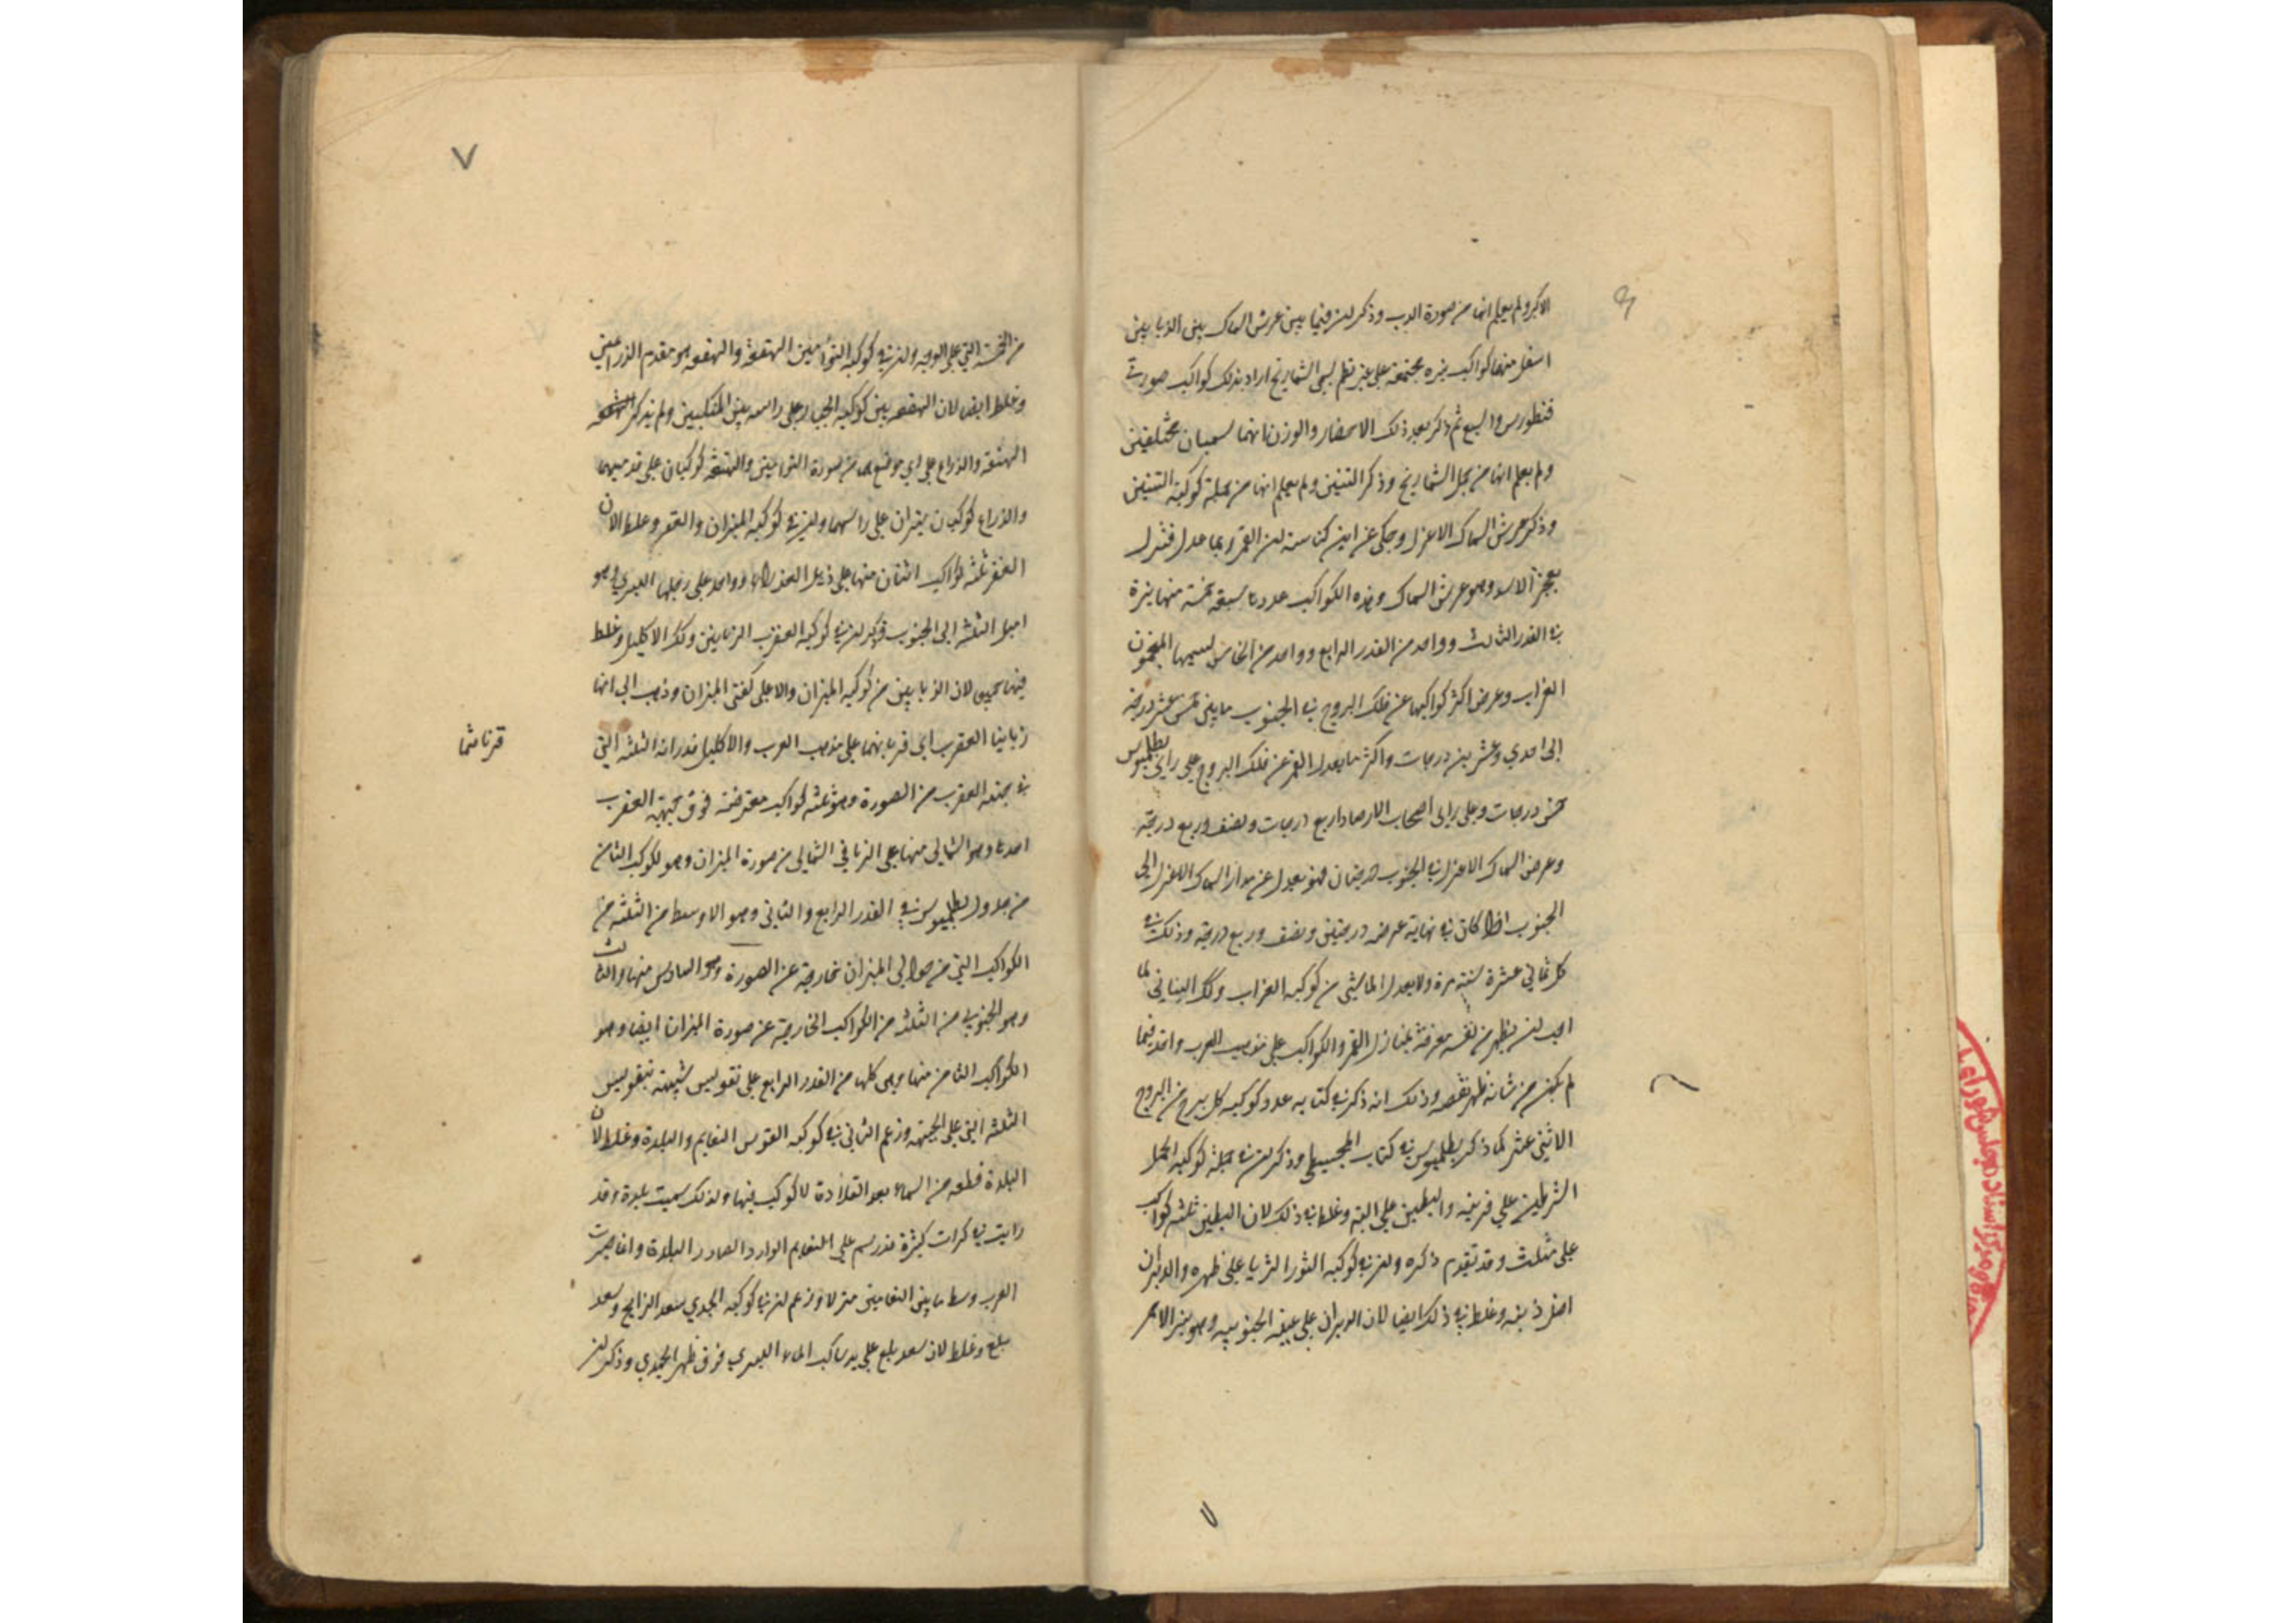 الاكبر ولم يعلم انها من صورة الدب وذكر ان فيما بين عرش السماك بين الزبانيين
اسفل منها كواكب نيره مجتمعة على غير نظم تسمى الشماريخ اراد بذلك كواكب صورتى
قنطورس والسبع ثم ذكر بعد ذلك الاحضار والوزن انهما تسميان محتلفين
ولم يعلم انها من جملة الشماريخ وذكر التنين ولم يعلم انها من جملة كوكبة التنين
وذكر عرش السماك الاعزل وحكى عن ابن كناسة ان القمر ربما عدل فنزل
بعجز الاسد وهو عرش السماك وهذه الكواكب عددها سبعة خمسة منها نيرة
في القدر الثالث وواحد من القدر الرابع وواحد من الخامس يسميها المنجمون
الغراب وعرض اكثر كواكبها عن فلك البروج في الجنوب ما بين خمس عشر درجة
الى احدي وعشرين درجات واكثر ما يعدل القمر عن فلك البروج على راي بطلميوس
خمس درجات وعلى راى اصحاب الارصاد اربع درجات ونصف وربع درجة
وعرض السماك الاعزل في الجنوب درجتان فهو يعدل عن مدار السماك الاعزل الى
الجنوب اذا كان في نهاية عرضه درجتين ونصف وربع درجة وذلك في
كل ثماني عشرة سنة مرة ولا يعدل الى شيء من كوكبة الغراب وكك البناني لما
احب ان يظهر من نفسه معرفة بمنازل القمر والكواكب على مذهب العرب واخذ فيما
لم يكن من شانه ظهر نقصه وذلك انه ذكر في كتابه عدد كوكبة كل برج من البروج
الاثني عشر كما ذكر بطلميوس في كتاب المجسطي وذكر ان في جملة كوكبة الحمل
الشرطين على قرنيه والبطين على اليته وغلط في ذلك لان البطين ثلثه كواكب
على مثلث وقد تقدم ذكره وان في كوكبة الثور الثريا على ظهره والدبران
اصل ذنبه وغلط في ذلك ايضا لان الدبران على عينه الجنوبيه وهو نير الاحمر
من الخمسة التي على الوجه وان في كوكبة التوأمين الهقعة والهنعه هو مقدم الذراعين
وغلط ايضا لان الهقعه بين كوكبة الجبار على راسه بين المنكبين ولم يذكر
الهنعة والذراع على اي موضع هما من صورة التوامين والهنعة كوكبان على قدميهما
والذراع كوكبان نيران على راسهما وان في كوكبة الميزان والغفر وغلط لان
الغفر ثلثه كواكب اثنان منها على ذيل العذراء وواحد على رجلها اليسري وهو
اميل الثلثه الى الجنوب وذكر ان في كوكبة العقرب الزبانيين وكك الاكليل وغلط
فيها جميعا لان الزبانيين من كوكبة الميزان والاعلى كفتى الميزان وذهب الى انها
زبانيا العقرب اي قرنا بهما على مذهب العرب والاكليل قدر انه الثلثه التي
في جبهة العقرب من الصورة وهو ثلثه كواكب معترضة فوق جبهة العقرب
احدها وهو الشمالى منها على الزباني الشمالي من صورة الميزان وهو الكوكب الثامن
من جدول بطلميوس في القدر الرابع والثاني وهو الاوسط من الثلثه من
الكواكب التي من حوالى الميزان خارجة عن الصورة وهو السادس منها والثالث
وهو الجنوبي من الثلثه من الكواكب الخارجة عن صورة الميزان ايضا وهو
الكواكب الثامن منها وهي كلها من القدر الرابع على تقويس شبيهة بتقويس
الثلثه التي على الجبهه وزعم الثاني في كوكبه القوس النعايم والبلدة وغلط لان
البلدة قطعه من السماء بعد القلادة لا كوكب فيها ولذلك سميت بلدة وقد
رايت في كرات كثيرة قد رسم على النعايم الوارد والصادر البلدة وانما صيرت
العرب وسط ما بين النعامتين منزلا وزعم ان في كوكبة الجدي سعد الذابح وسعد
بلع وغلط لان سعد بلع على يد ساكب الماء اليسري فوق ظهر الجدي وذكر ان
٧